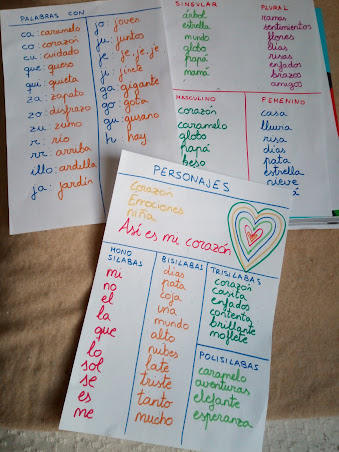 PALABRAS CON
ca: caramelo
co: corazón
cu: cuidado
que: queso
qui: quieta
za: zapato
zo: disfrazo
zu: zumo
r: río
rr: arriba
illo: ardilla
ja: jardín
jo: joves
ju: juntos
je: je, je, je
ji: jirete
ga: gigante
go: gota
gu: gusano
h: hay
SINGULAR
árbol
estrella
mundo
globo
papá
mamá
PLURAL
ramas
sentimientos
flores
días
risas
enfados
brazos
amigos
MASCULINO
corazón
caramelo
globo
papá
beso
FEMENINO
casa
lluvia
risa
días
pata
estrella
nieve
PERSONAJES
Corazón
Emociones
niña
Así es mi corazón
MONO
SILABAS
mi
no
el
la
que
lo
sol
se
es
me
BISILABAS
días
pata
coja
una
mundo
alto
nubes
late
triste
tanto
mucho
TRISILABAS
corazón
casita
enfados
contenta
brillante
moflete
POLISILABAS
caramelo
aventuras
elefante
esperanza